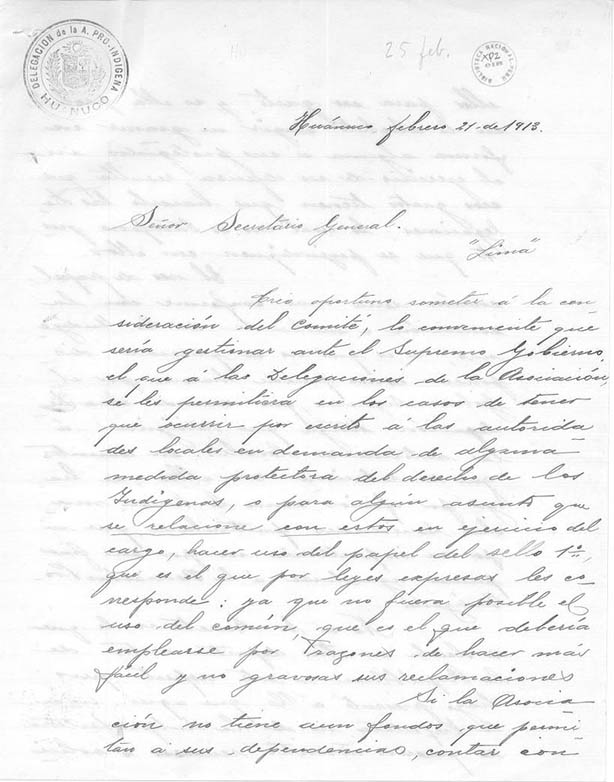 DELEGACION de la A. PRO-INDIGENA
HUANUCO
25 feb.
BIBLIOTECA NACIONAL
XP2
Huánuco febrero 21 de 1913.
Señor Secretario General.
"Lima"
Creo oportuno someter á la con
sideración del Comité, lo conveniente que
sería gestionar ante el Supremo Gobierno,
el que á las Delegaciones de la Asociación,
se les permitiera en los casos de tener
que ocurrir por escrito á las autorida
des locales en demanda de alguna
medida protectora del derecho de los
Indígenas, o para algún asunto que
se relacione con estos en ejercicio del
cargo, hacer uso del papel del sello 1º,
que es el que por leyes expresas les co-
rresponde: ya que no fuera posible el
uso del común, que es el que debería
emplearse por razones de hacer más
fácil y no gravosas sus reclamaciones
Si la Asocia
ción no tiene aun fondos que permi
tan a sus dependencias, contar con